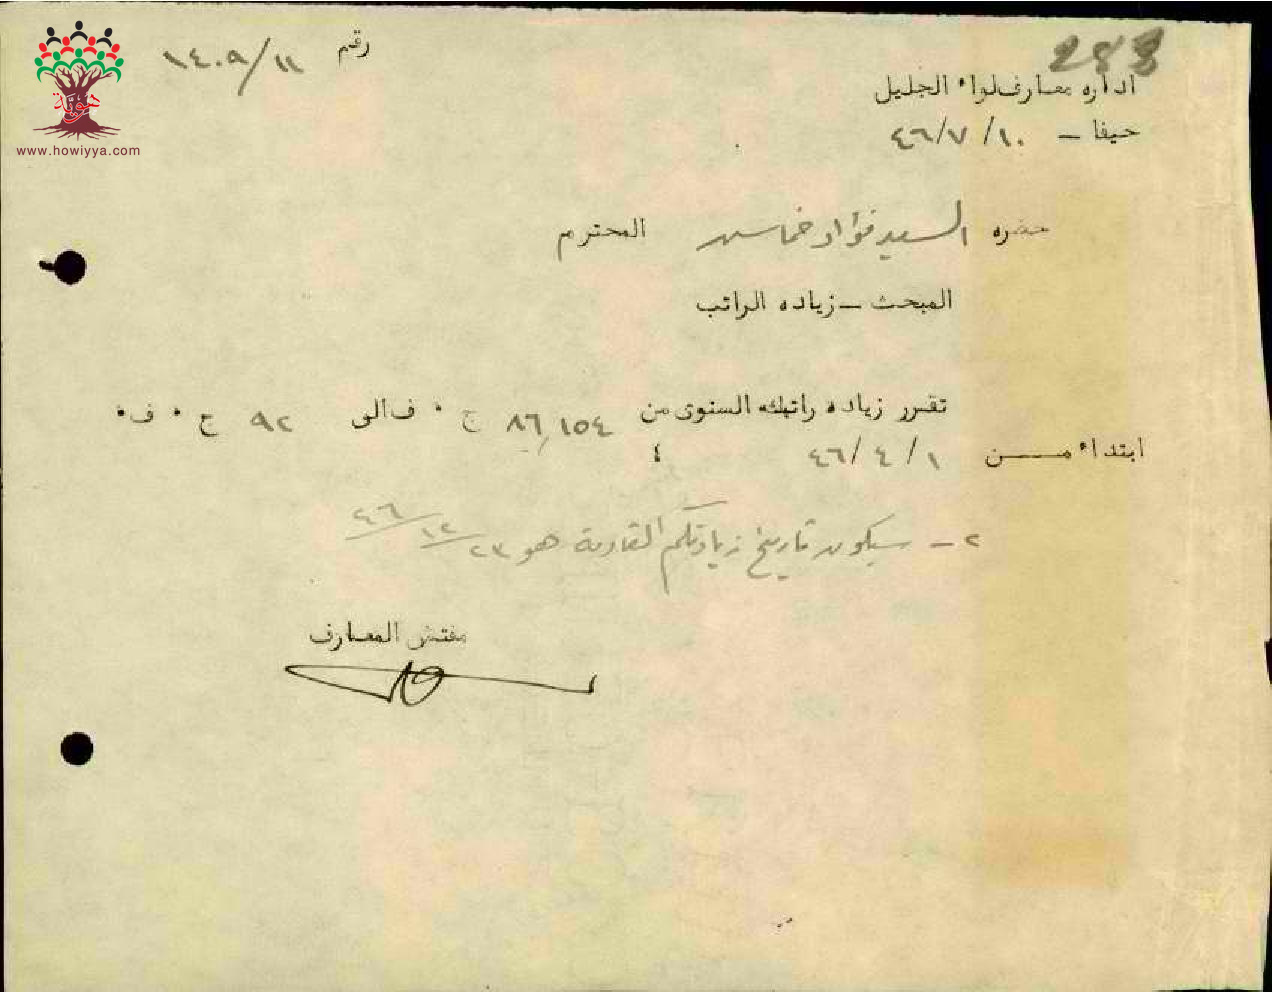 283
رقم ١٤٠٩/١١
هوية
www.howiyya.com
اداره معارف لواء الجليل
حيفا – ٤٦/٧/١٠
حضره السيد فؤاد خماسي المحترم
المبحث – زياده الراتب
تقرر زياده راتبك السنوى من ٨٦,١٥٤ ج ٠ ف الى ٩٢ ج ٠ ف٠
ابتداء مــن ٤٦/٤/١ ؛
٢ – سيكون تاريخ زيادتكم القادمة هو ٢٣/١٢/٤٦
مفتش المعارف